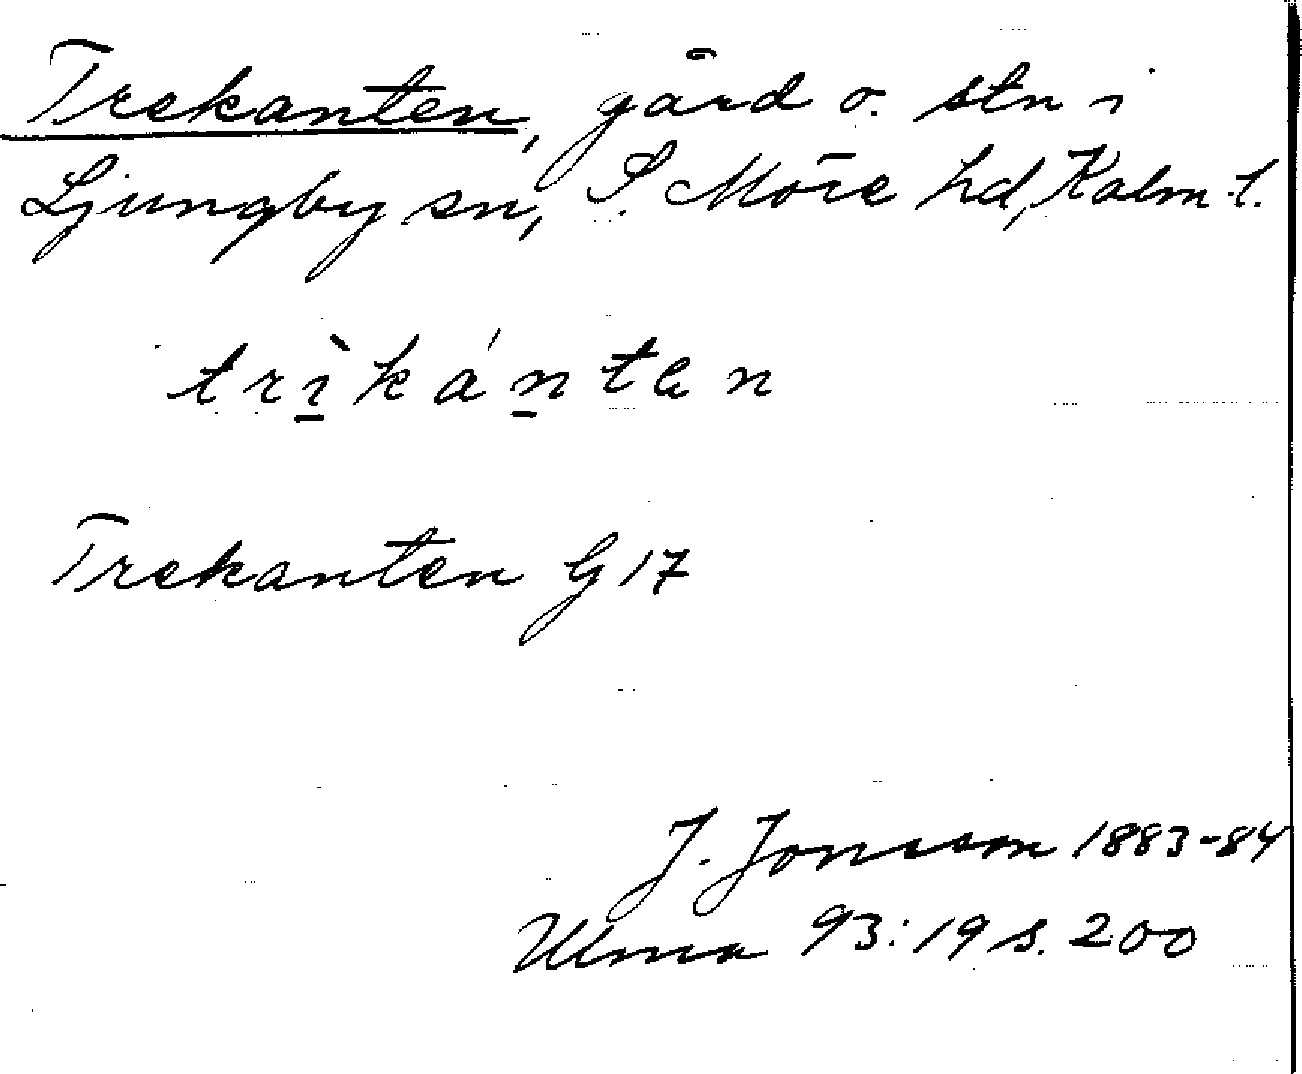 Trekanten, gård o. stn i
Ljungby sn, S. Möre hd, Kalm. l.
trı̱̀káṉten
Trekanten G 17
J. Jonsson 1883-84
Ulma 93:19 s. 200